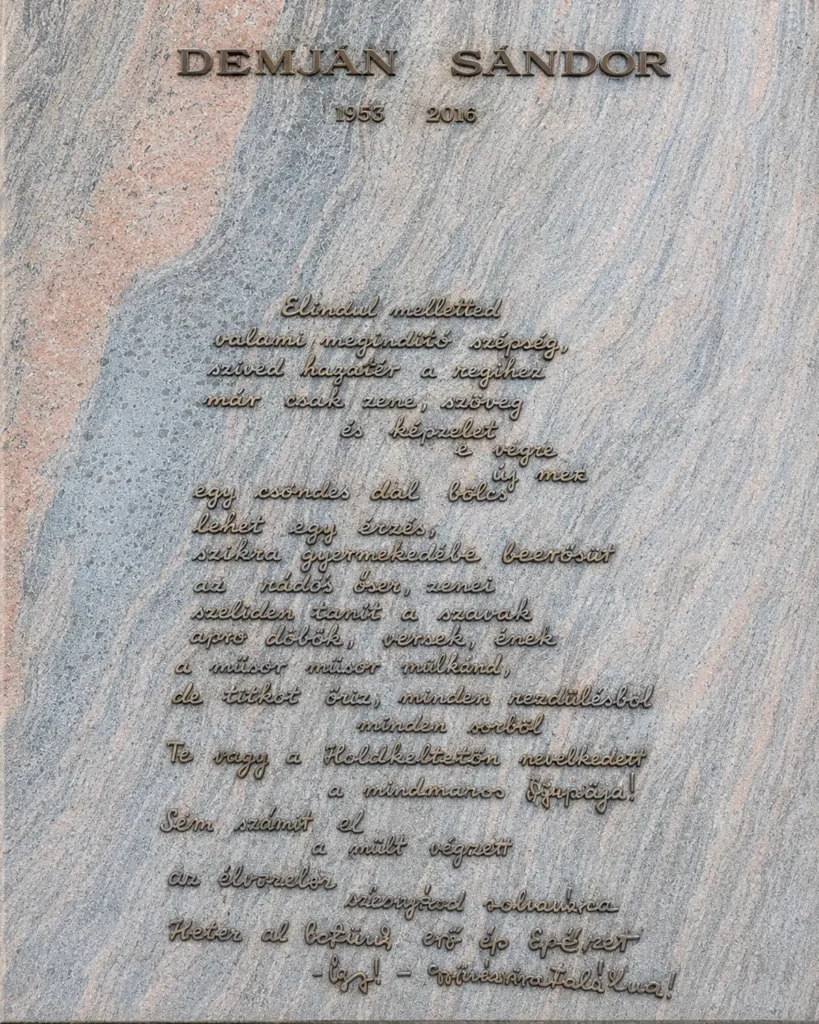 DEMJÁN SÁNDOR
1953 2016
Elindul melletted
valami megindító szépség,
szíved hazatér a régihez
már csak zene, szöveg
és képzelet
é végre
új mek
egy csöndes dal bölcs
lehet egy érzés,
szikra gyermekedébe beerősüt
az rádós őser, zenei
szeliden tanít a szavak
apro döbök, versek, ének
a műsor műsor mulkánd,
de titkot őriz, minden rezdülésből
minden sorból
Te vagy a Holdkeltetőn nevelkedett
a mindmaros
Sém számít el
a múlt végzett
az élvozelőr
Heter al erő ép